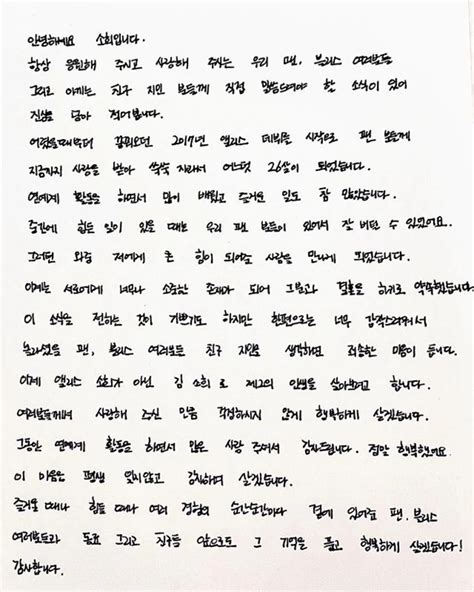 안녕하세요 소희입니다.
항상 응원해 주시고 사랑해 주시는 우리 팬, 블리스 여러분들
그리고 아끼는 친구 지인 분들께 직접 말씀드려야 할 소식이 있어
진심을 담아 적어봅니다.
어렸을때부터 꿈꿔오던 2017년 앨리스 데뷔를 시작으로 팬 분들께
지금까지 사랑을 받아 쑥쑥 자라서 어느덧 26살이 되었습니다.
연예계 활동을 하면서 많이 배웠고 즐거운 일도 참 많았습니다.
중간에 힘든 일이 있을 때는 우리 팬 분들이 있어서 잘 버틸 수 있었어요.
그러던 와중 저에게 큰 힘이 되어준 사랑을 만나게 되었습니다.
이제는 서로에게 너무나 소중한 존재가 되어 그분과 결혼을 하기로 약속했습니다.
이 소식을 전하는 것이 기쁘기도 하지만 한편으로는 너무 갑작스러워서
놀라셨을 팬, 블리스 여러분들 친구 지인을 생각하면 죄송한 마음이 듭니다.
이제 앨리스 소희가 아닌 김소희로 제2의 인생을 살아보려고 합니다.
여러분들께서 사랑해 주신 만큼 걱정하시지 않게 행복하게 살겠습니다.
그동안 연예계 활동을 하면서 많은 사랑 주셔서 감사드립니다. 정말 행복했어요.
이 마음은 평생 잊지않고 감사하며 살겠습니다.
즐거울 때나 힘들 때나 여러 경험의 순간순간마다 곁에 있어준 팬, 블리스
여러분들과 동료 그리고 친구들 앞으로도 그 기억을 품고 행복하게 살겠습니다!
감사합니다.